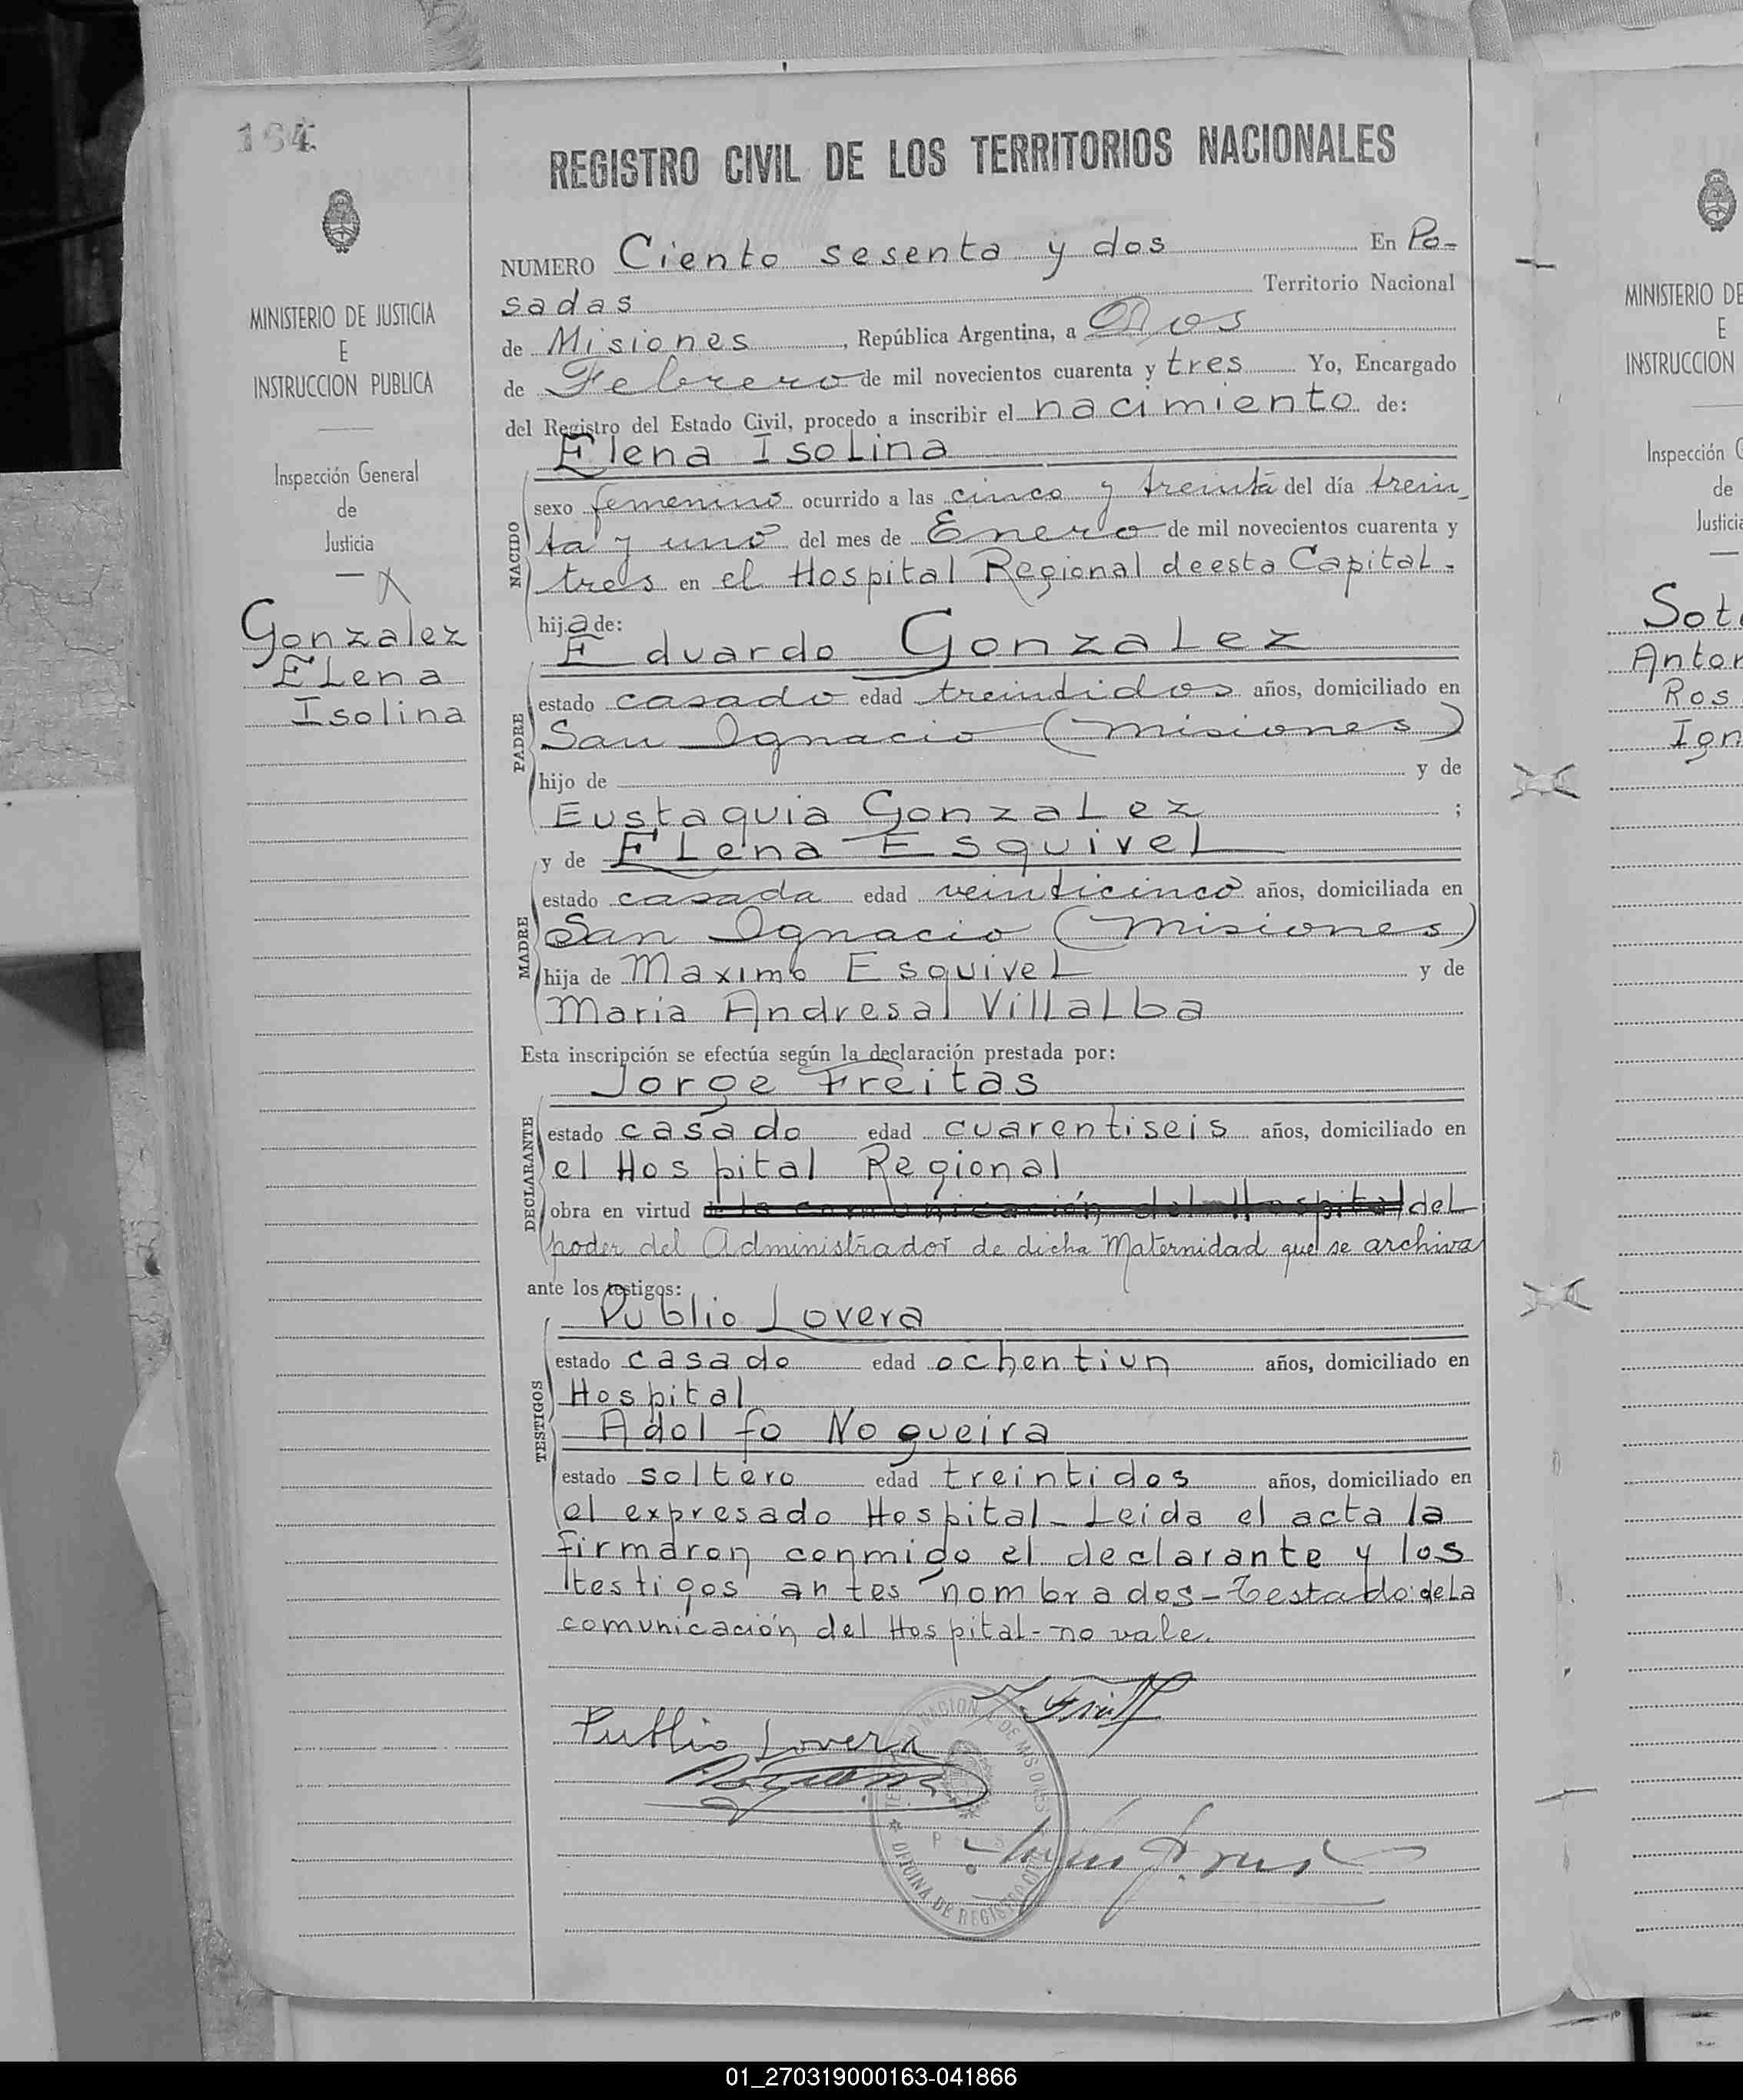 164
REGISTRO CIVIL DE LOS TERRITORIOS NACIONALES
MINISTERIO DE JUSTICIA
E
INSTRUCCION PUBLICA
Inspección General
de
Justicia
Gonzalez
Elena
Isolina
NUMERO Ciento sesenta y dos En Po-
sadas Territorio Nacional
de Misiones, República Argentina, a Dos
de Febrero de mil novecientos cuarenta y tres Yo, Encargado
del Registro del Estado Civil, procedo a inscribir el nacimiento de:
Elena Isolina
NACIDO
sexo femenino ocurrido a las cinco y treinta del día trein-
ta y uno del mes de Enero de mil novecientos cuarenta y
tres en el Hospital Regional de esta Capital.
hija de:
Eduardo Gonzalez
PADRE
estado casado edad treintidos años, domiciliado en
San Ignacio (Misiones)
hijo de y de
Eustaquia Gonzalez ;
y de Elena Esquivel
MADRE
estado casada edad veinticinco años, domiciliada en
San Ignacio (Misiones)
hija de Maximo Esquivel y de
Maria Andresa Villalba
Esta inscripción se efectúa según la declaración prestada por:
Jorge Freitas
DECLARANTE
estado casado edad cuarentiseis años, domiciliado en
el Hospital Regional
obra en virtud de la comunicación del Hospital del
poder del Administrador de dicha Maternidad que se archiva
ante los testigos:
Publio Lovera
TESTIGOS
estado casado edad ochentiun años, domiciliado en
Hospital
Adolfo Nogueira
estado soltero edad treintidos años, domiciliado en
el expresado Hospital_Leida el acta la
firmaron conmigo el declarante y los
testigos antes nombrados-Testado: de la
comunicación del Hospital-no vale.
Publio Lovera
OFICINA DE REGISTRO
MINISTERIO DE
E
INSTRUCCION
Inspección G
de
Justicia
Soto
Anton
Ros
Ign
01_270319000163-041866